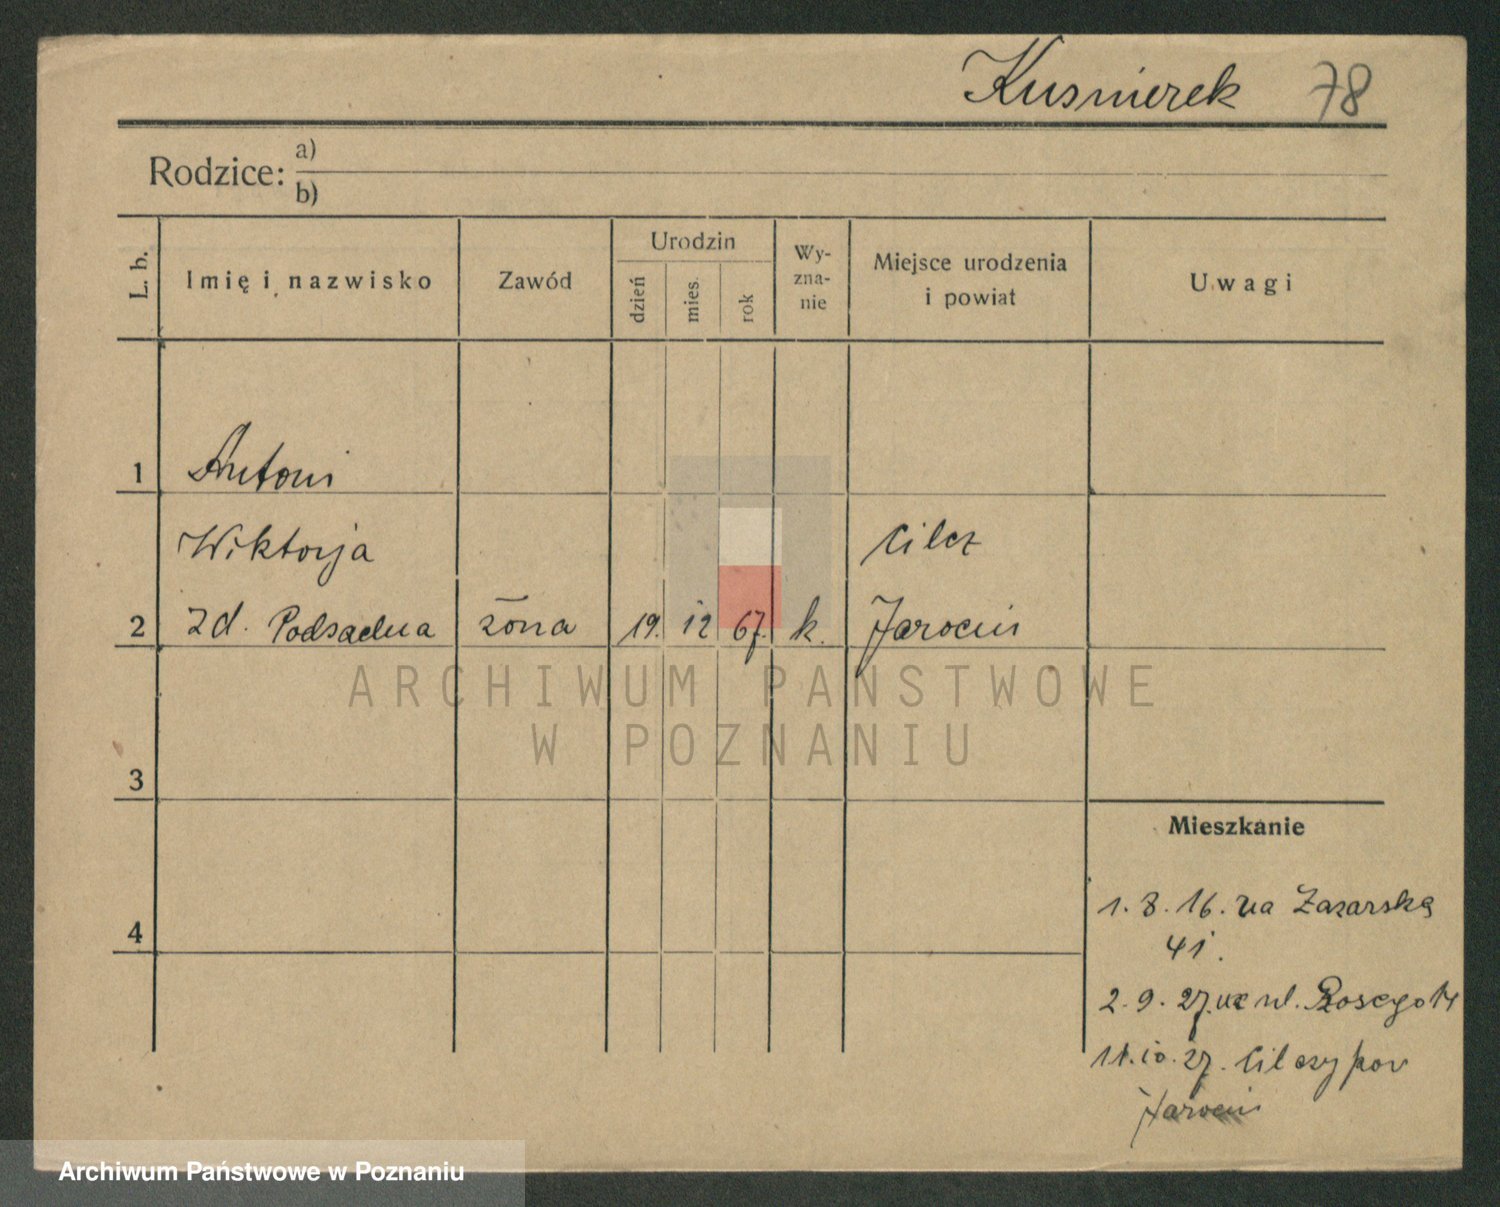 Kusmierek 78
Rodzice: a)
b)
L. b.
Imię i nazwisko
Zawód
Urodzin
dzień
mies.
rok
Wy-
zna-
nie
Miejsce urodzenia
i powiat
Uwagi
1 Antoni
Wiktorja Cilcz
2 zd. Podsadna żona 19. 12 67. k. Jarocin
ARCHIWUM PAŃSTWOWE
W POZNANIU
3
Mieszkanie
1. 8. 16. na Łazarską
4
41.
2. 9. 27. ul.
11. 10. 27. Cilczy pow
Jarocin
Archiwum Państwowe w Poznaniu